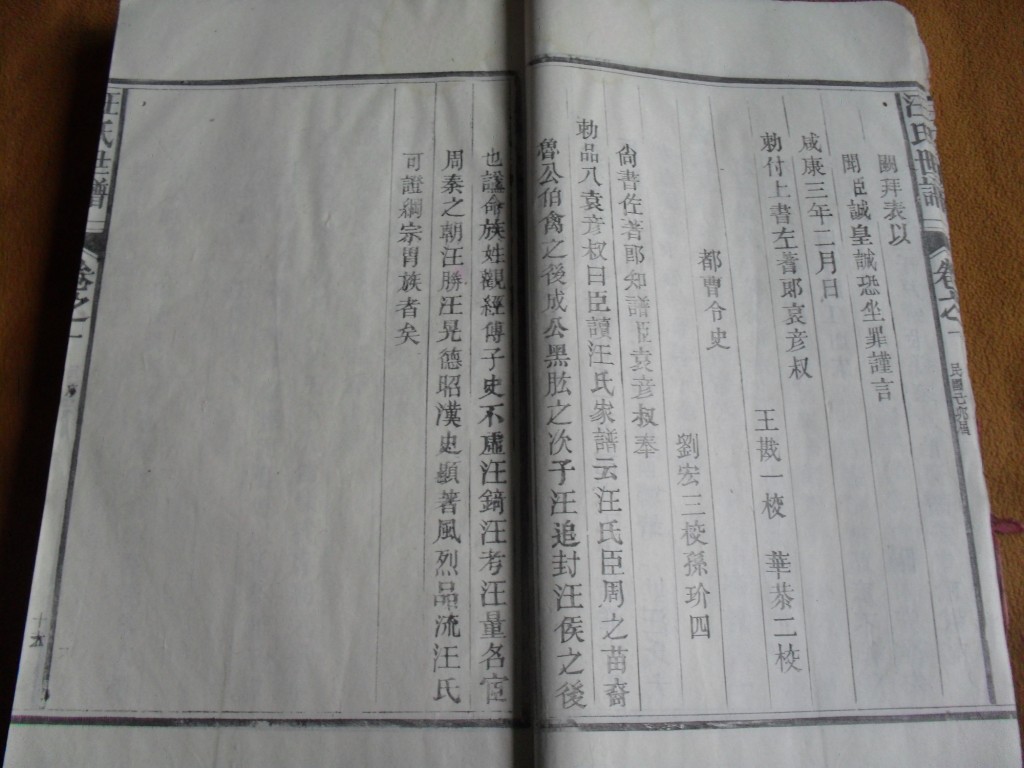 汪氏世譜
卷之一
闕拜表以
聞臣誠皇誠恐坐罪謹言
咸康三年二月日
勅付上書左著郎袁彦叔
王戡一校 華恭二校
都曹令史
劉宏三校孫玠四
尙書佐著郎知譜臣袁彦叔奉
勅品八袁彦叔曰臣讀汪氏家譜云汪氏臣周之苗裔
魯公伯禽之後成公黑肱之次子汪追封汪侯之後
也證命族姓觀經傳子史不虛汪錡汪考汪量各宦
周秦之朝汪勝汪晃德昭漢史顯著風烈品流汪氏
可證綱宗胄族者矣
汪氏世譜
卷之一
十五